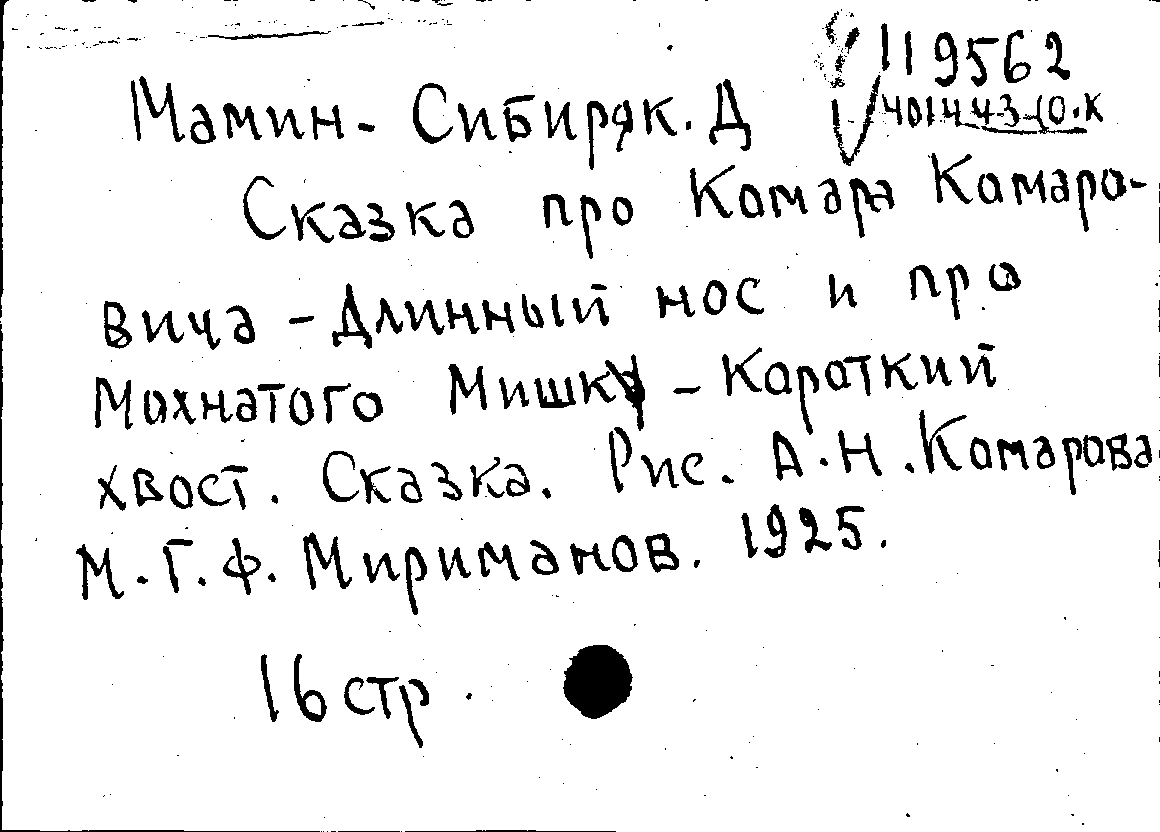 119562
Мамин-Сибиряк. Д
401443-10.К
Сказка про Комара Комаро-
вича - Длинный нос и про
Мохнатого Мишку - Короткий
хвост. Сказка. Рис. А.Н.Комарова
М.Г.Ф. Мириманов. 1925.
16 стр.